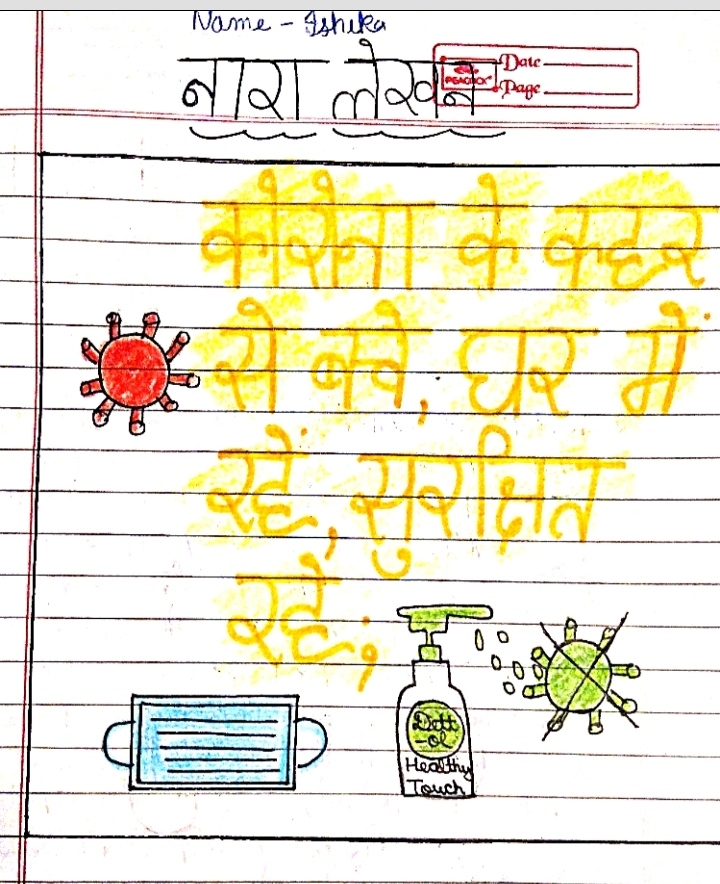 Name - Ishika
नारा लेखन
Date
Page
कोरोना के कहर
से बचे, घर में
रहें, सुरक्षित
रहें;
Dett
-ol
Healthy
Touch